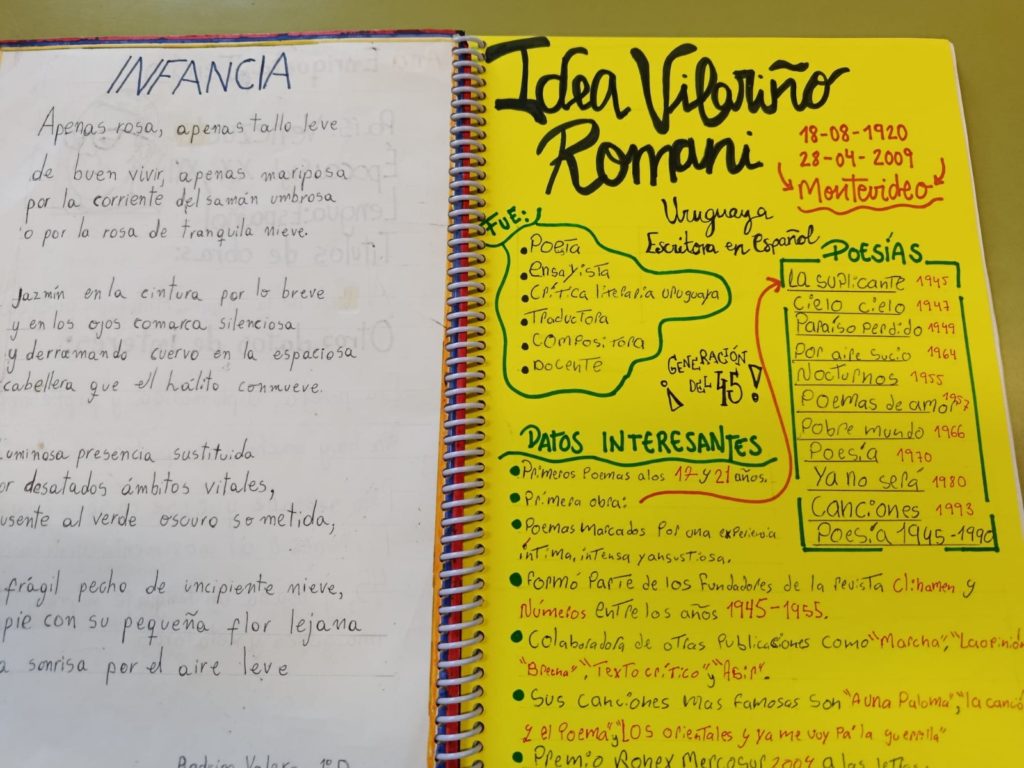 INFANCIA
Apenas rosa, apenas tallo leve
de buen vivir, apenas mariposa
por la corriente del samán umbrosa
o por la rosa de tranquila nieve.
Jazmín en la cintura por lo breve
y en los ojos comarca silenciosa
y derramando cuervo en la espaciosa
cabellera que el hálito conmueve.
Luminosa presencia sustituida
or desatados ámbitos vitales,
usente al verde oscuro sometida,
frágil pecho de incipiente nieve,
pie con su pequeña flor lejana
a sonrisa por el aire leve
Idea Vilariño
Romani
18-08-1920
28-04-2009
Montevideo
Uruguaya
Escritora en español
FUE:
• Poeta
• ensayista
• Crítica literaria uruguaya
• Traductora
• Compositora
• Docente
¡GENERACIÓN
DEL 45!
POESÍAS
La suplicante 1945
Cielo cielo 1947
Paraíso perdido 1949
Por aire sucio 1964
Nocturnos 1955
Poemas de amor 1957
Pobre mundo 1966
Poesía 1970
Ya no será 1980
Canciones 1993
Poesía 1945-1990
DATOS INTERESANTES
• Primeros Poemas a los 17 y 21 años.
• Primera obra:
• Poemas marcados por una experiencia
íntima, intensa y angustiosa.
• Formó parte de los fundadores de la revista Clinamen y
Números entre los años 1945-1955.
• Colaboradora de otras Publicaciones como "Marcha", "La opinión
"Brecha", "Texto crítico" y "Asir".
• Sus canciones mas famosas son "A una Paloma", "la canció
y el Poema" y "LOS orientales y ya me voy Pa la guerrilla"
• Premio Konex Mercosur 2004 a las letras.